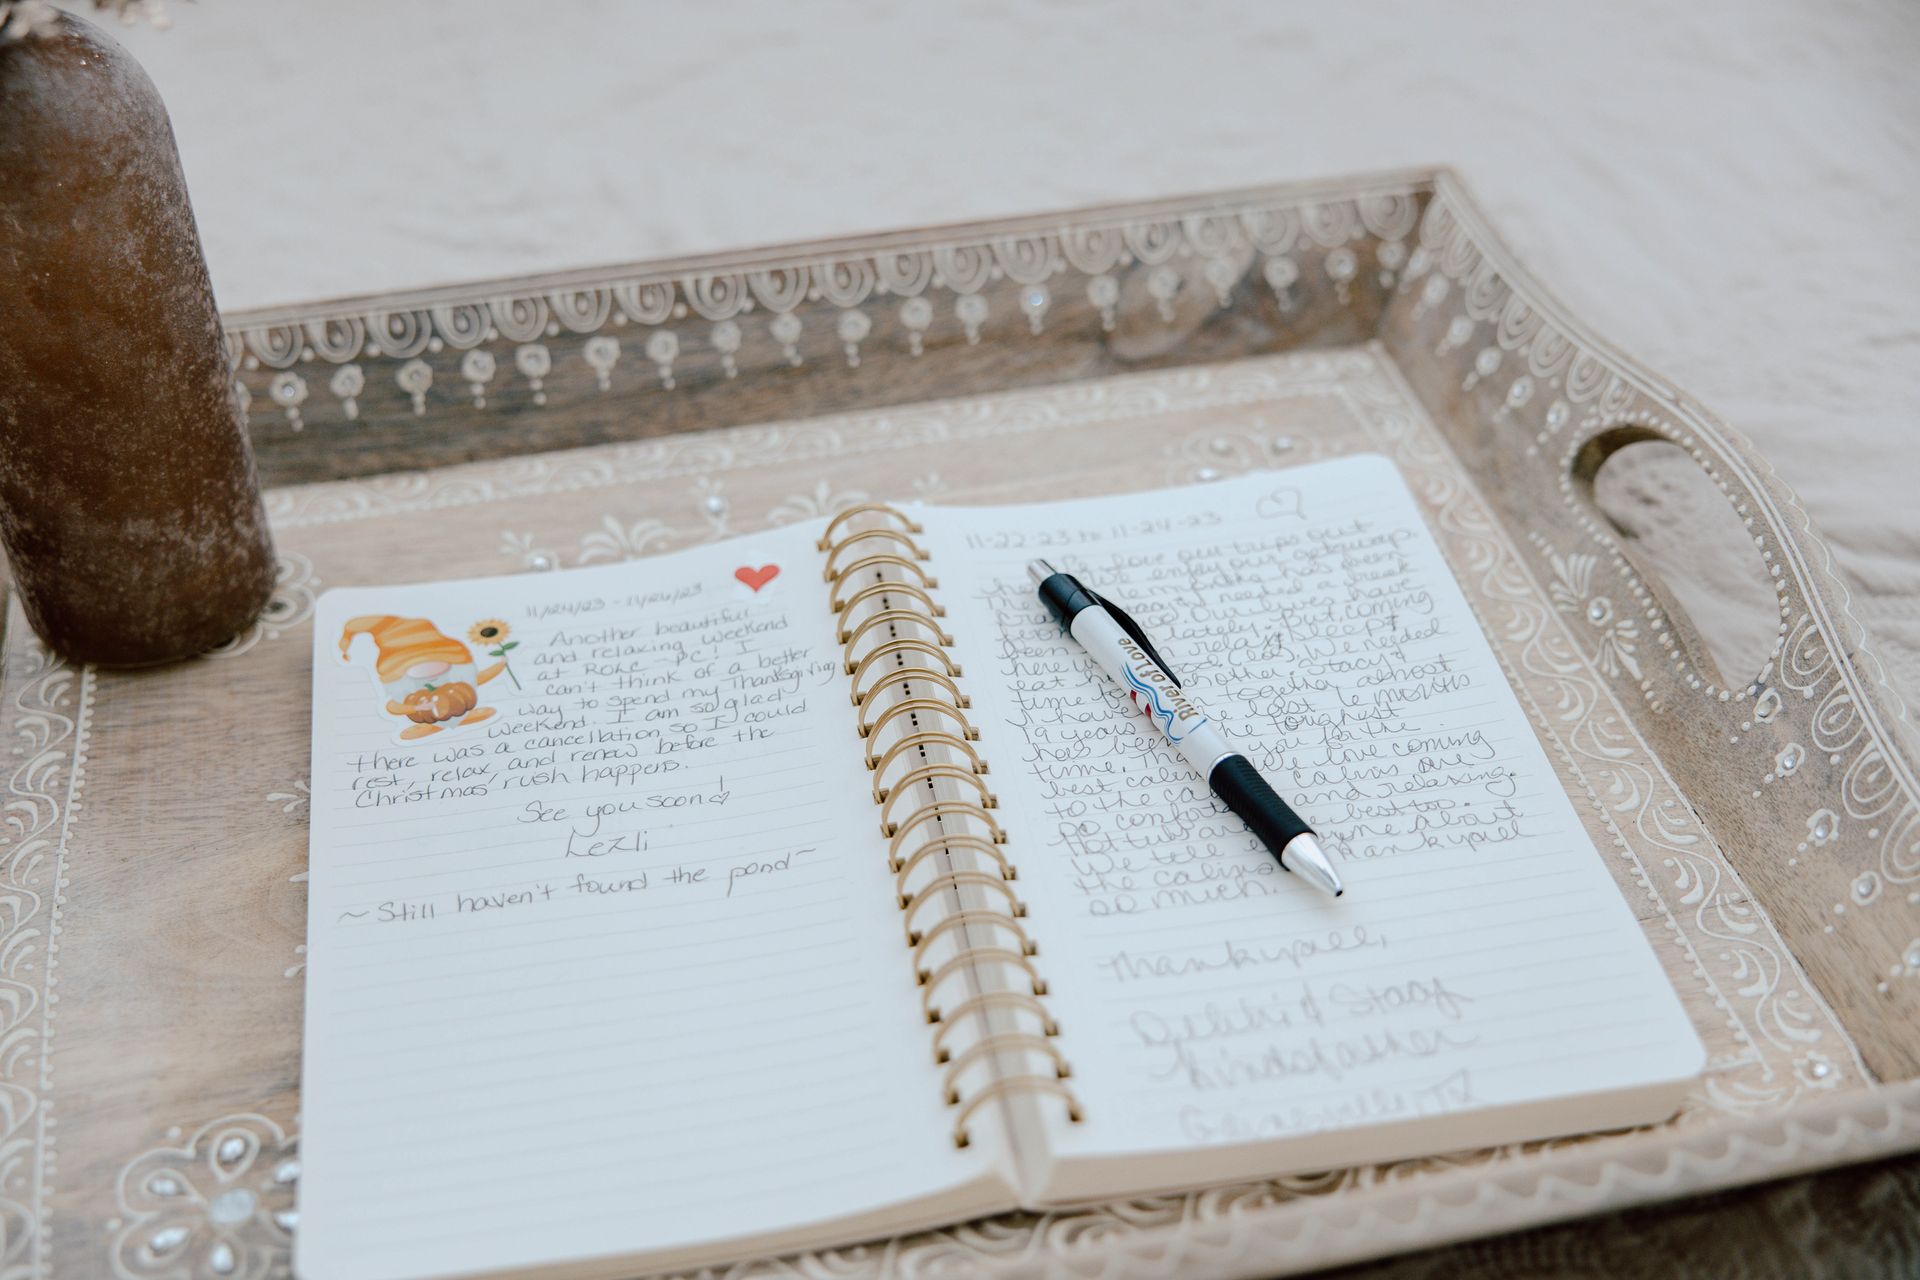 11/24/23 - 11/26/23
Another beautiful
and relaxing weekend
at Rose I
can't think of a better
way to spend my Thanksgiving
weekend. I am so glad
there was a cancellation so I could
rest, relax, and renew before the
Christmas rush happens.
See you soon!
Lezli
~ Still haven't found the pond ~
11-22-23 to 11-24-23
love our trips out
We enjoy our getaways.
has been
needed a break
Our lives have
lately. But, coming
here relax, sleep,
eat We needed
time together, Stacy &
I have almost
19 years. The last 2 months
has been the toughest
time. you for the
best cabins We love coming
to the cabins are
so comfortable and relaxing.
Hot tubs are the best too.
We tell everyone about
the cabins Thank yall
so much.
Thank yall,
Debbi & Stacy
Gainesville, TX
River of Love